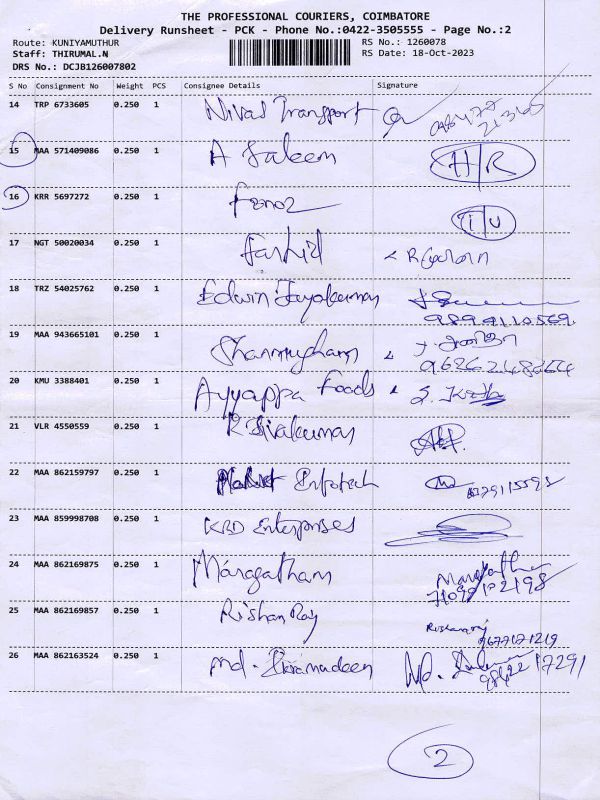 THE PROFESSIONAL COURIERS, COIMBATORE
Delivery Runsheet - PCK - Phone No.:0422-3505555 - Page No.:2
Route: KUNIYAMUTHUR RS No.: 1260078
Staff: THIRUMAL.N RS Date: 18-Oct-2023
DRS No.: DCJB126007802
S No Consignment No Weight PCS Consignee Details Signature
14 TRP 6733605 0.250 1 Nivas Transport
15 MAA 571409086 0.250 1 A Saleem H/R
16 KRR 5697272 0.250 1 iu
17 NGT 50020034 0.250 1 Farhid
18 TRZ 54025762 0.250 1 Edwin Jayakumar
9899110569.
19 MAA 943665101 0.250 1 Shanmugham
20 KMU 3388401 0.250 1 Ayyappa Foods
21 VLR 4550559 0.250 1 R Sivakumar
22 MAA 862159797 0.250 1 Infotech
23 MAA 859998708 0.250 1 KRD Enterprises
24 MAA 862169875 0.250 1 Maragatham
25 MAA 862169857 0.250 1 Rishan Raj
9677171219
26 MAA 862163524 0.250 1 md. Ikramudeen Md.
17291
2